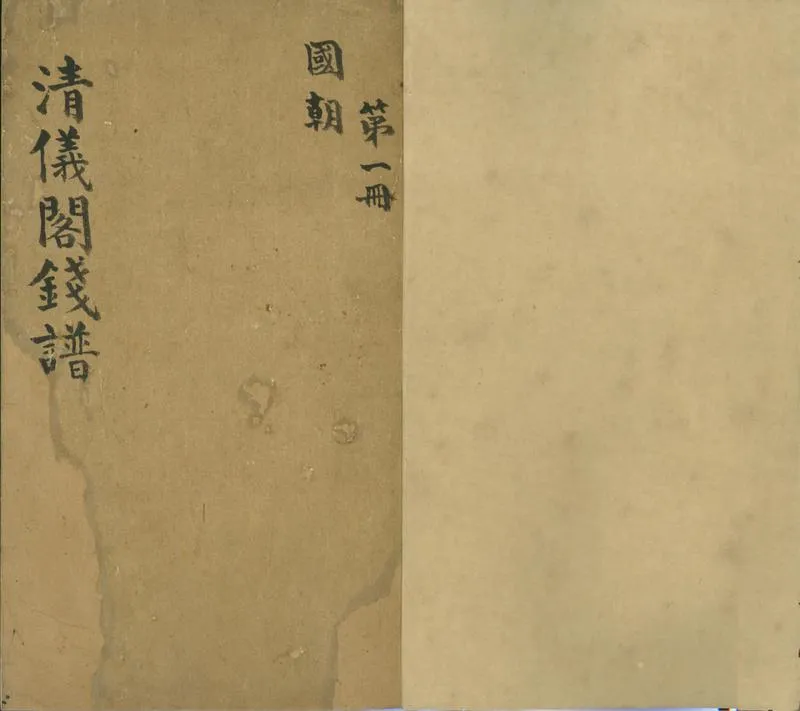 第一冊
國朝
清儀閣錢譜